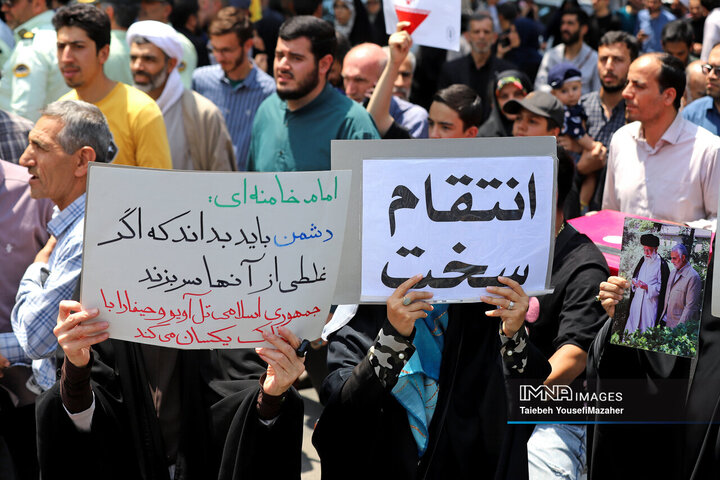 امام خامنه ای:
دشمن باید بداند که اگر
غلطی از آنها سر بزند
جمهوری اسلامی تل آویو و حیفا را با
خاک یکسان می کند
انتقام
سخت
IMNA IMAGES
Taiebeh YousefiMazaher